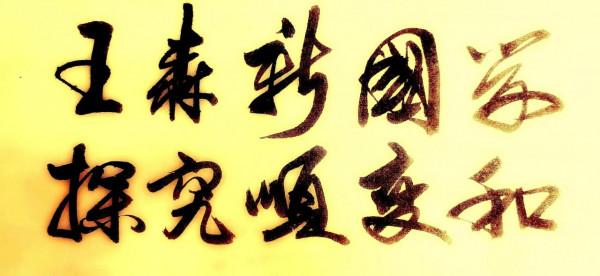 王森新國学
探究順变和